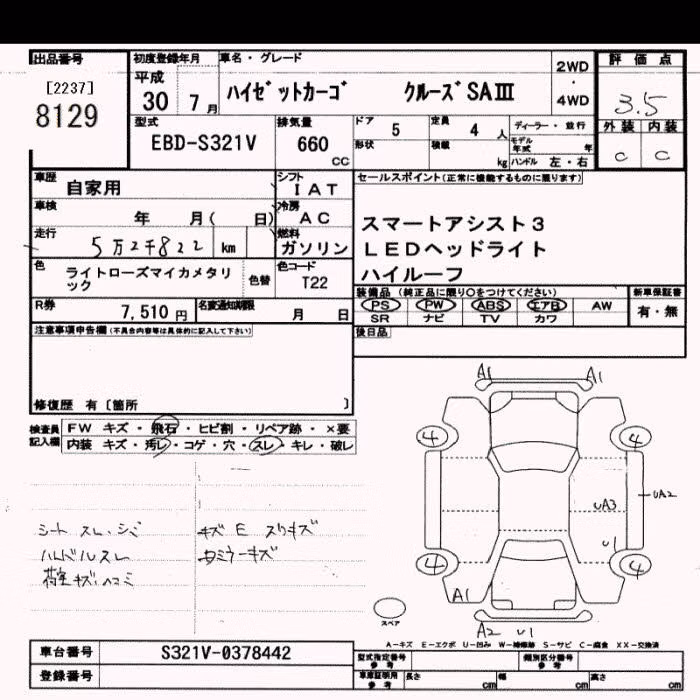 出品番号 初度登録年月 車名・グレード 2WD ・ 4WD 評価点
[2237] 平成 ハイゼットカーゴ クルーズSAⅢ 3.5
8129 30 7月
型式 排気量 ドア 5 定員 4人 ディーラー・並行 外装 内装
EBD-S321V 660 cc 形状 積載 kg モデル年式 年 C C
ハンドル 左・右
車歴 自家用 シフト IAT セールスポイント(正常に機能するものに限ります)
車検 年 月( 日) 冷房 AC スマートアシスト3
走行 5万2千822 km 燃料 ガソリン LEDヘッドライト
色 ライトローズマイカメタリック 色替 色コード T22 ハイルーフ
R券 7,510円 名変通知期限 月 日 装備品(純正品に限り○をつけてください) 新車保証書
PS PW ABS エアB AW 有・無
SR ナビ TV カワ
注意事項申告欄(不具合内容等は具体的に記入して下さい) 後日品
修復歴 有〔箇所 〕
検査員記入欄 FW キズ・飛石・ヒビ割・リペア跡・×要
内装 キズ・汚レ・コゲ・穴・スレ・キレ・破レ
シート スレ、シミ キズ E スリキズ
ハンドルスレ カミラーキズ
荷室キズ、ヘコミ
A1 A1
4 4
UA2
UA3
U1
4 4
A1
スペア A2 U1
A－キズ E－エクボ U－凹み W－補修跡 S－サビ C－腐食 XX－交換済
車台番号 S321V-0378442 型式指定番号 参考 類別区分番号 参考
登録番号 車庫証明用 参考 長さ cm 幅 cm 高さ cm